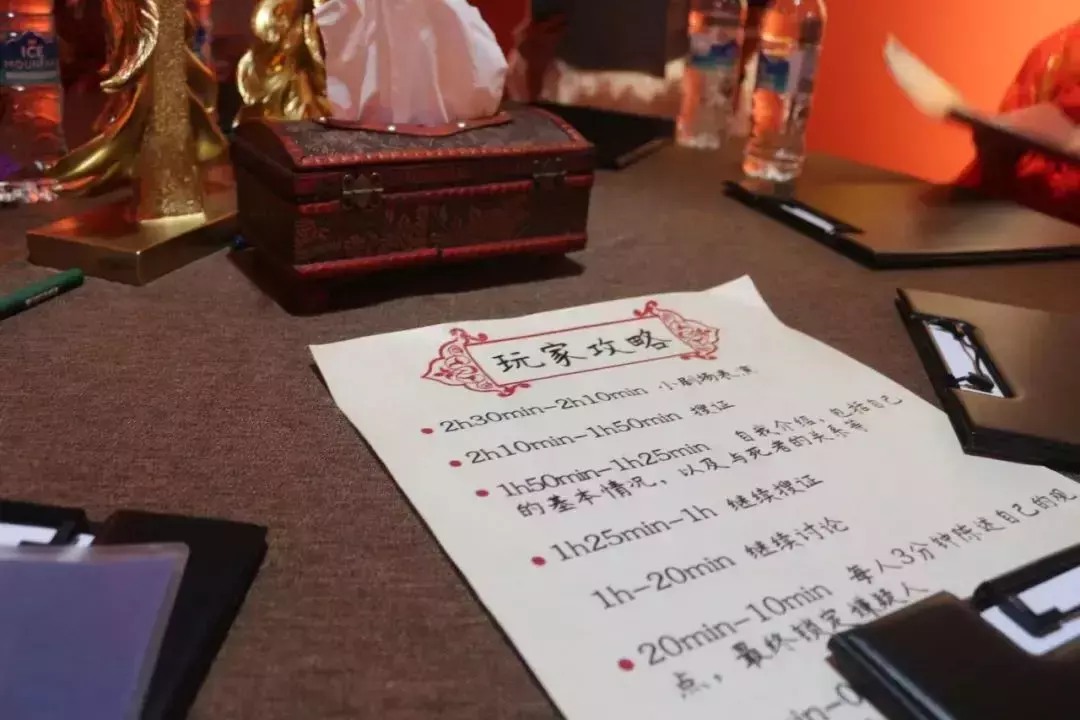 ICE
MOUNTAIN
玩家攻略
2h30min-2h10min 小剧场表演
2h10min-1h50min 搜证
1h50min-1h25min 自我介绍，包括自己
的基本情况，以及与死者的关系等
1h25min-1h 继续搜证
1h-20min 继续讨论
20min-10min 每人3分钟陈述自己的观
点，最终锁定嫌疑人